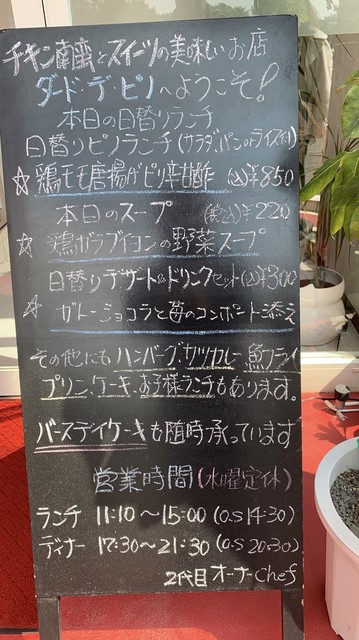 チキン南蛮とスイーツの美味しいお店
ダド・デ・ピノへようこそ!
本日の日替りランチ
日替りピノランチ(サラダ、パンorライス付)
☆鶏モモ唐揚げピリ辛甘酢 (込)¥850
本日のスープ (税込)¥220
☆鶏ガラブイヨンの野菜スープ
日替りデザート&ドリンクセット(込)¥300
☆ガトーショコラと苺のコンポート添え
その他にもハンバーグ、カツカレー、魚フライ
プリン、ケーキ、お子様ランチもあります。
バースデイケーキも随時承っています
営業時間(水曜定休)
ランチ 11:10〜15:00(O.S 14:30)
ディナー 17:30〜21:30(O.S 20:30)
2代目オーナーChef